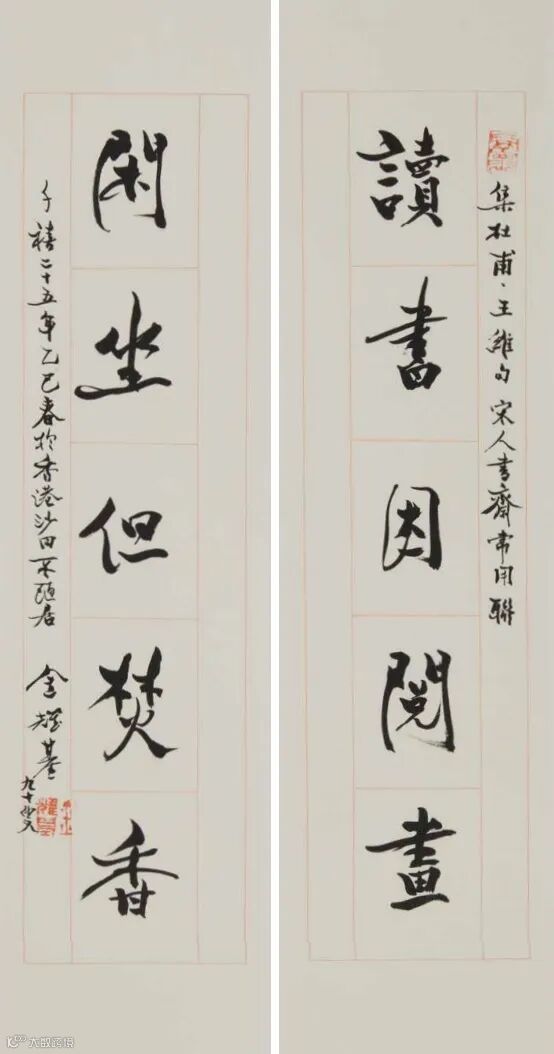 讀書因閱畫
集杜甫、王維句 宋人書齋常用聯
閑坐但焚香
千禧二十五年乙巳春於香港沙田不隨居 金耀基
九十
大数跨境